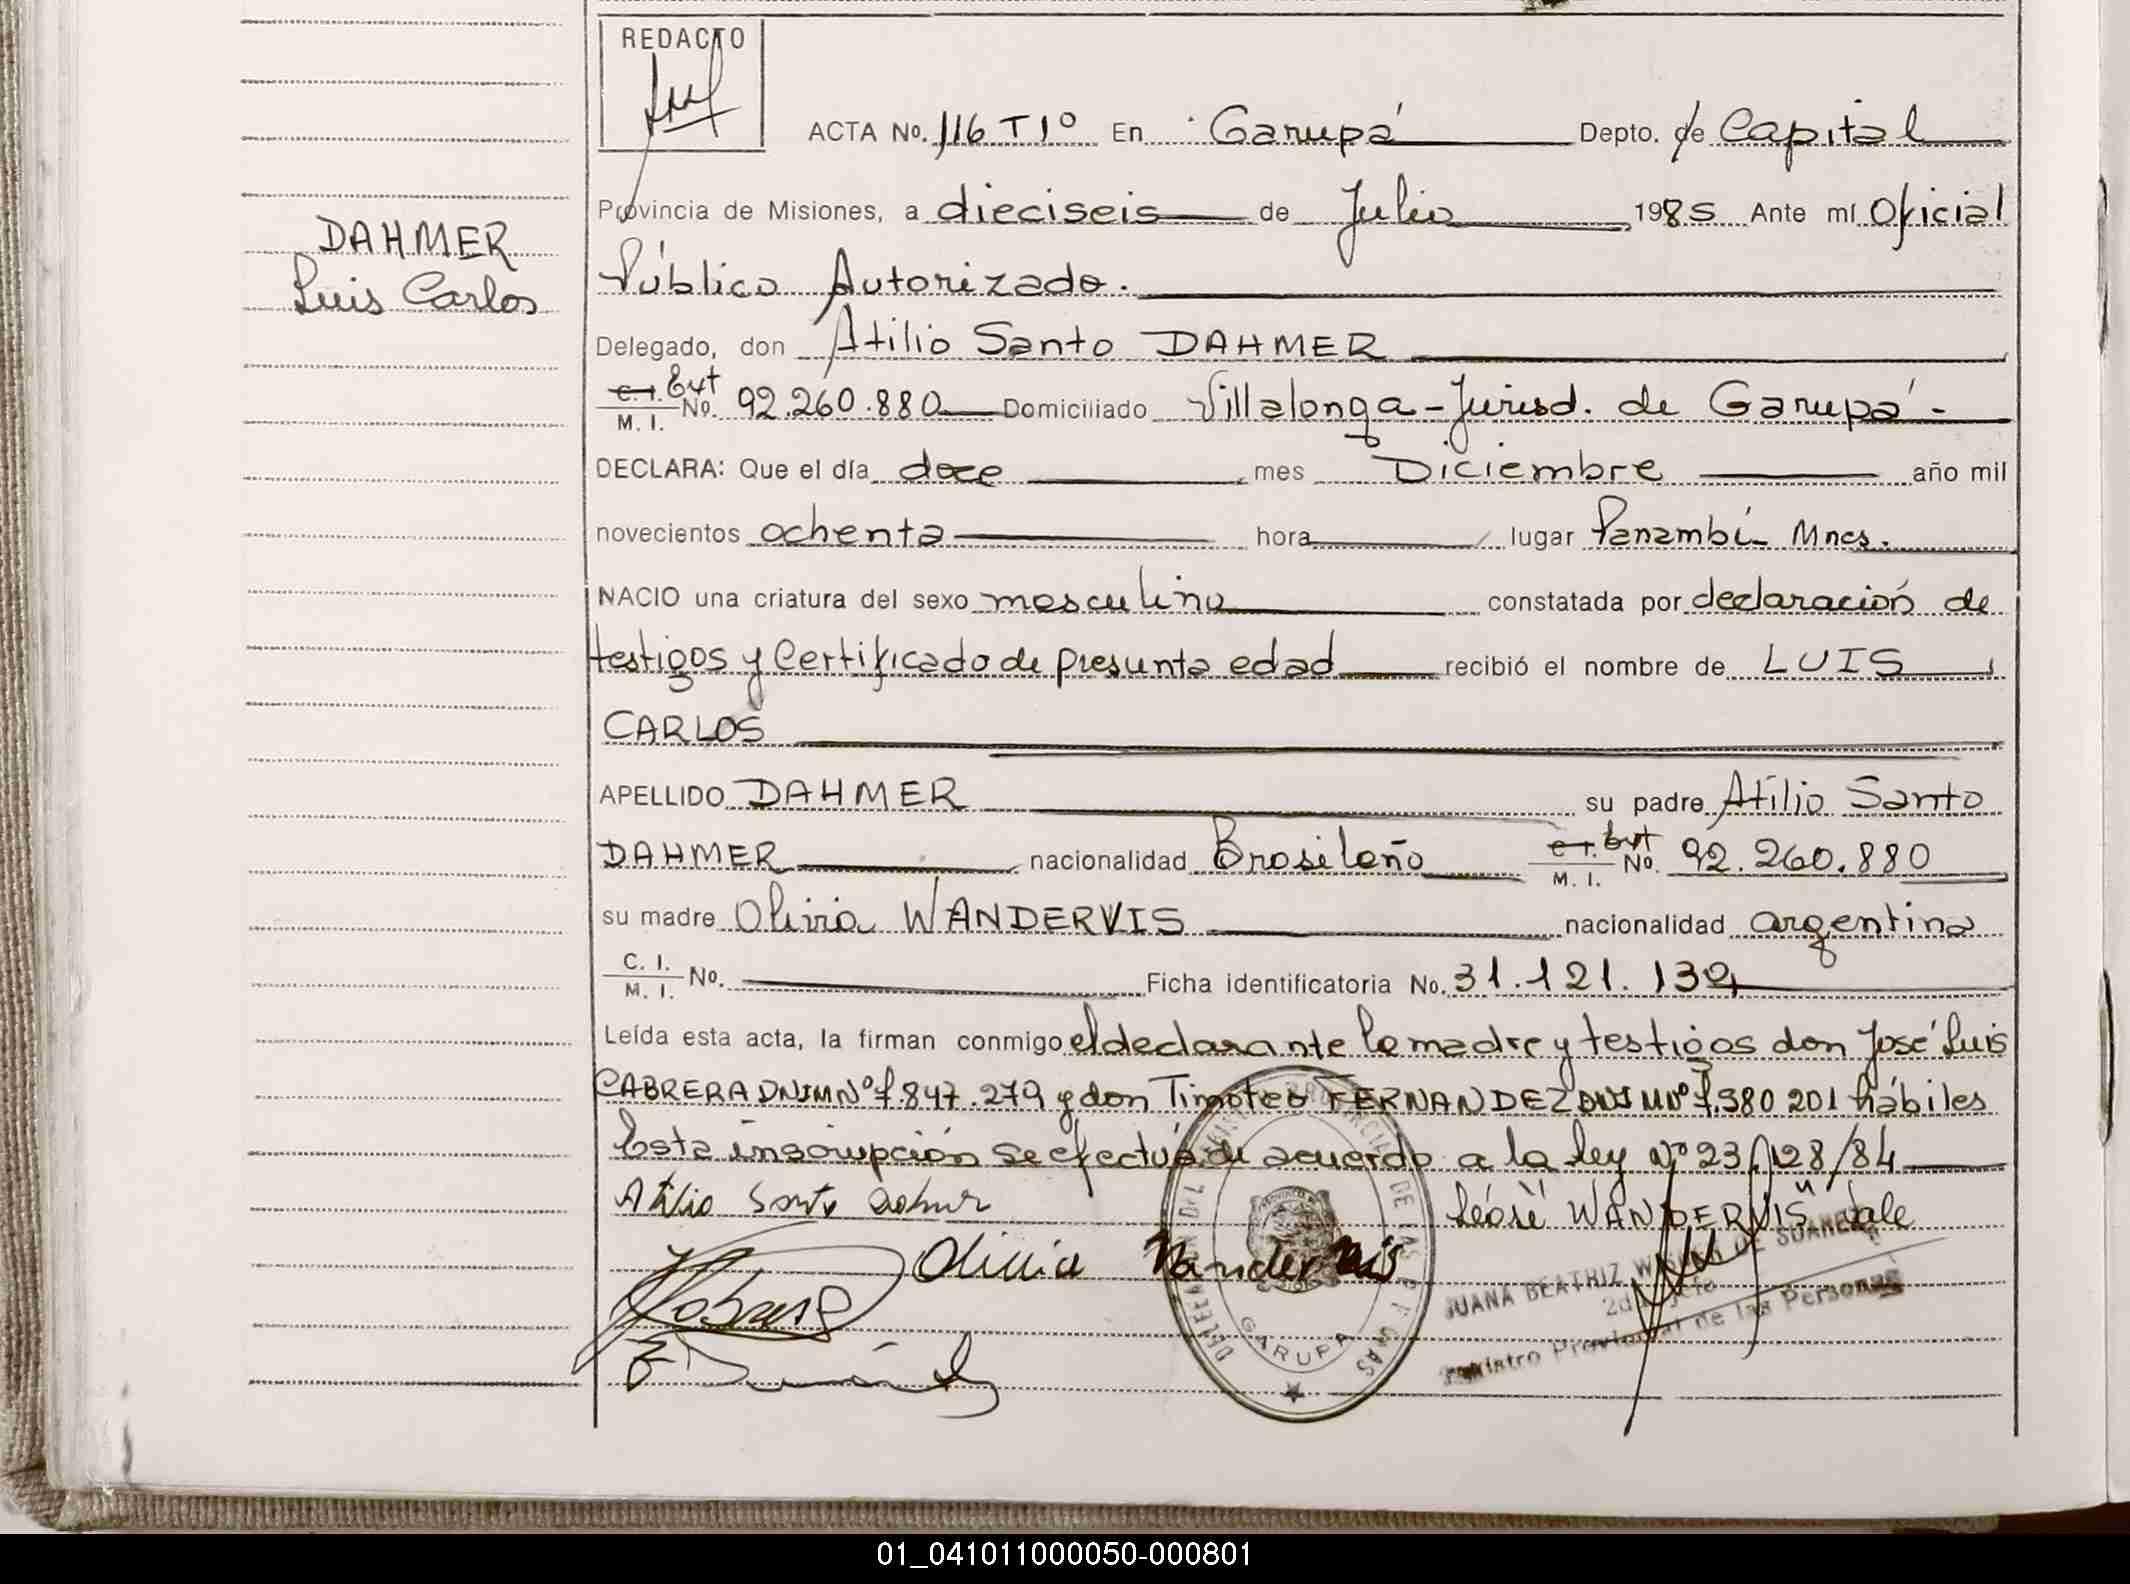 REDACTO
ACTA No. 116 T1º En Garupá Depto. de Capital
Provincia de Misiones, a dieciseis de Julio 1985 Ante mí Oficial
Público Autorizado.
DAHMER
Luis Carlos
Delegado, don Atilio Santo DAHMER
C.I. Ext
M. I. No. 92.260.880 Domiciliado Villalonga - Jurisd. de Garupá -
DECLARA: Que el día doce mes Diciembre año mil
novecientos ochenta hora lugar Panambí Mnes.
NACIO una criatura del sexo masculino constatada por declaración de
testigos y Certificado de presunta edad recibió el nombre de LUIS
CARLOS
APELLIDO DAHMER su padre Atilio Santo
DAHMER nacionalidad Brasileño C.I. Ext M. I. No. 92.260.880
su madre Olivia WANDERVIS nacionalidad argentina
C. I.
M. I. No. Ficha identificatoria No. 31.121.132
Leída esta acta, la firman conmigo el declarante la madre y testigos don José Luis
CABRERA DNIM Nº 7.847.279 y don Timoteo FERNANDEZ DNI M Nº 7.580 201 hábiles
Esta inscripción se efectúa de acuerdo a la ley Nº 23.128/84
Atilio Santo Dahmer Léase "WANDERVIS" Vale
Olivia Vandervis
JUANA BEATRIZ DE SUAREZ
2da Jefe
Registro Provincial de las Personas
GARUPA
01_041011000050-000801